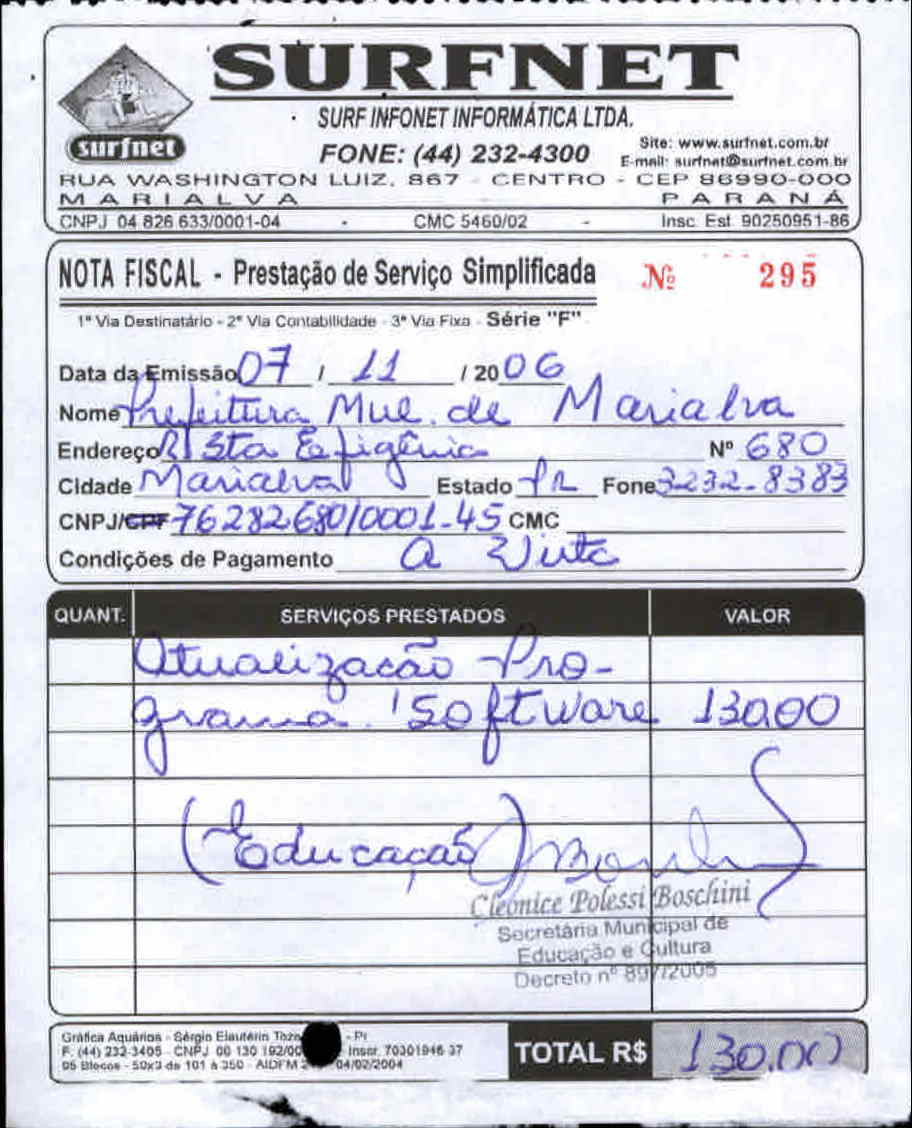 SURFNET
surfnet
SURF INFONET INFORMÁTICA LTDA.
FONE: (44) 232-4300
Site: www.surfnet.com.br
E-mail: surfnet@surfnet.com.br
RUA WASHINGTON LUIZ, 867 - CENTRO - CEP 86990-000
MARIALVA PARANÁ
CNPJ 04 826 633/0001-04 - CMC 5460/02 - Insc. Est. 90250951-86
NOTA FISCAL - Prestação de Serviço Simplificada Nº 295
1ª Via Destinatário - 2ª Via Contabilidade - 3ª Via Fixa - Série "F"
Data da Emissão 07 / 11 / 2006
Nome Prefeittura Mul. de Marialva
Endereço R Sta Eefigênia Nº 680
Cidade Marialva Estado Pr Fone 3232-8383
CNPJ/CPF 76282680/0001-45 CMC
Condições de Pagamento a Vista
QUANT. SERVIÇOS PRESTADOS VALOR
Atualização Pro-
grama 'Software 130,00
(Educação)
Cleonice Polessi Boschini
Secretária Municipal de
Educação e Cultura
Decreto nº 897/2005
Gráfica Aquárius - Sérgio Elautério - Pr
F. (44) 232-3405 - CNPJ 00 130 192/00 Inscr. 70301946-37
05 Blocos - 50x3 de 101 à 350 - AIDFM 04/02/2004
TOTAL R$ 130,00